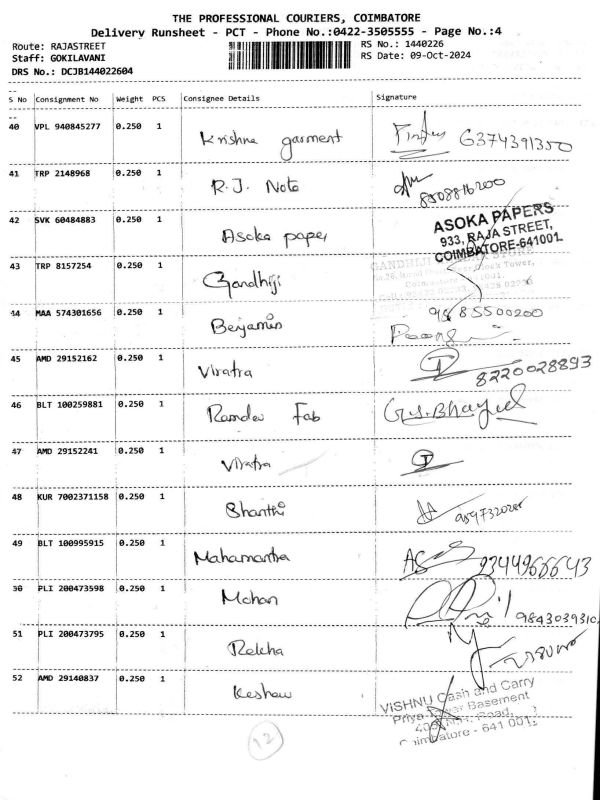 THE PROFESSIONAL COURIERS, COIMBATORE
Delivery Runsheet - PCT - Phone No.:0422-3505555 - Page No.:4
Route: RAJASTREET RS No.: 1440226
Staff: GOKILAVANI RS Date: 09-Oct-2024
DRS No.: DCJB144022604
S No Consignment No Weight PCS Consignee Details Signature
40 VPL 940845277 0.250 1 Krishna garment 6374391350
41 TRP 2148968 0.250 1 R.J. Note 8508816200
42 SVK 60484883 0.250 1 Asoka paper ASOKA PAPERS
933, RAJA STREET,
COIMBATORE-641001.
43 TRP 8157254 0.250 1 Gandhiji GANDHIJI
44 MAA 574301656 0.250 1 Benjamin 9585500200
45 AMD 29152162 0.250 1 Viratra 8220028893
46 BLT 100259881 0.250 1 Ramdev Fab
47 AMD 29152241 0.250 1 Viratra
48 KUR 7002371158 0.250 1 Shanthi
49 BLT 100995915 0.250 1 Mahamantra
50 PLI 200473598 0.250 1 Mohan 9843039310
51 PLI 200473795 0.250 1 Rekha
52 AMD 29140837 0.250 1 Keshav VISHNU Cash and Carry
Basement
Road,
Coimbatore - 641 001
12